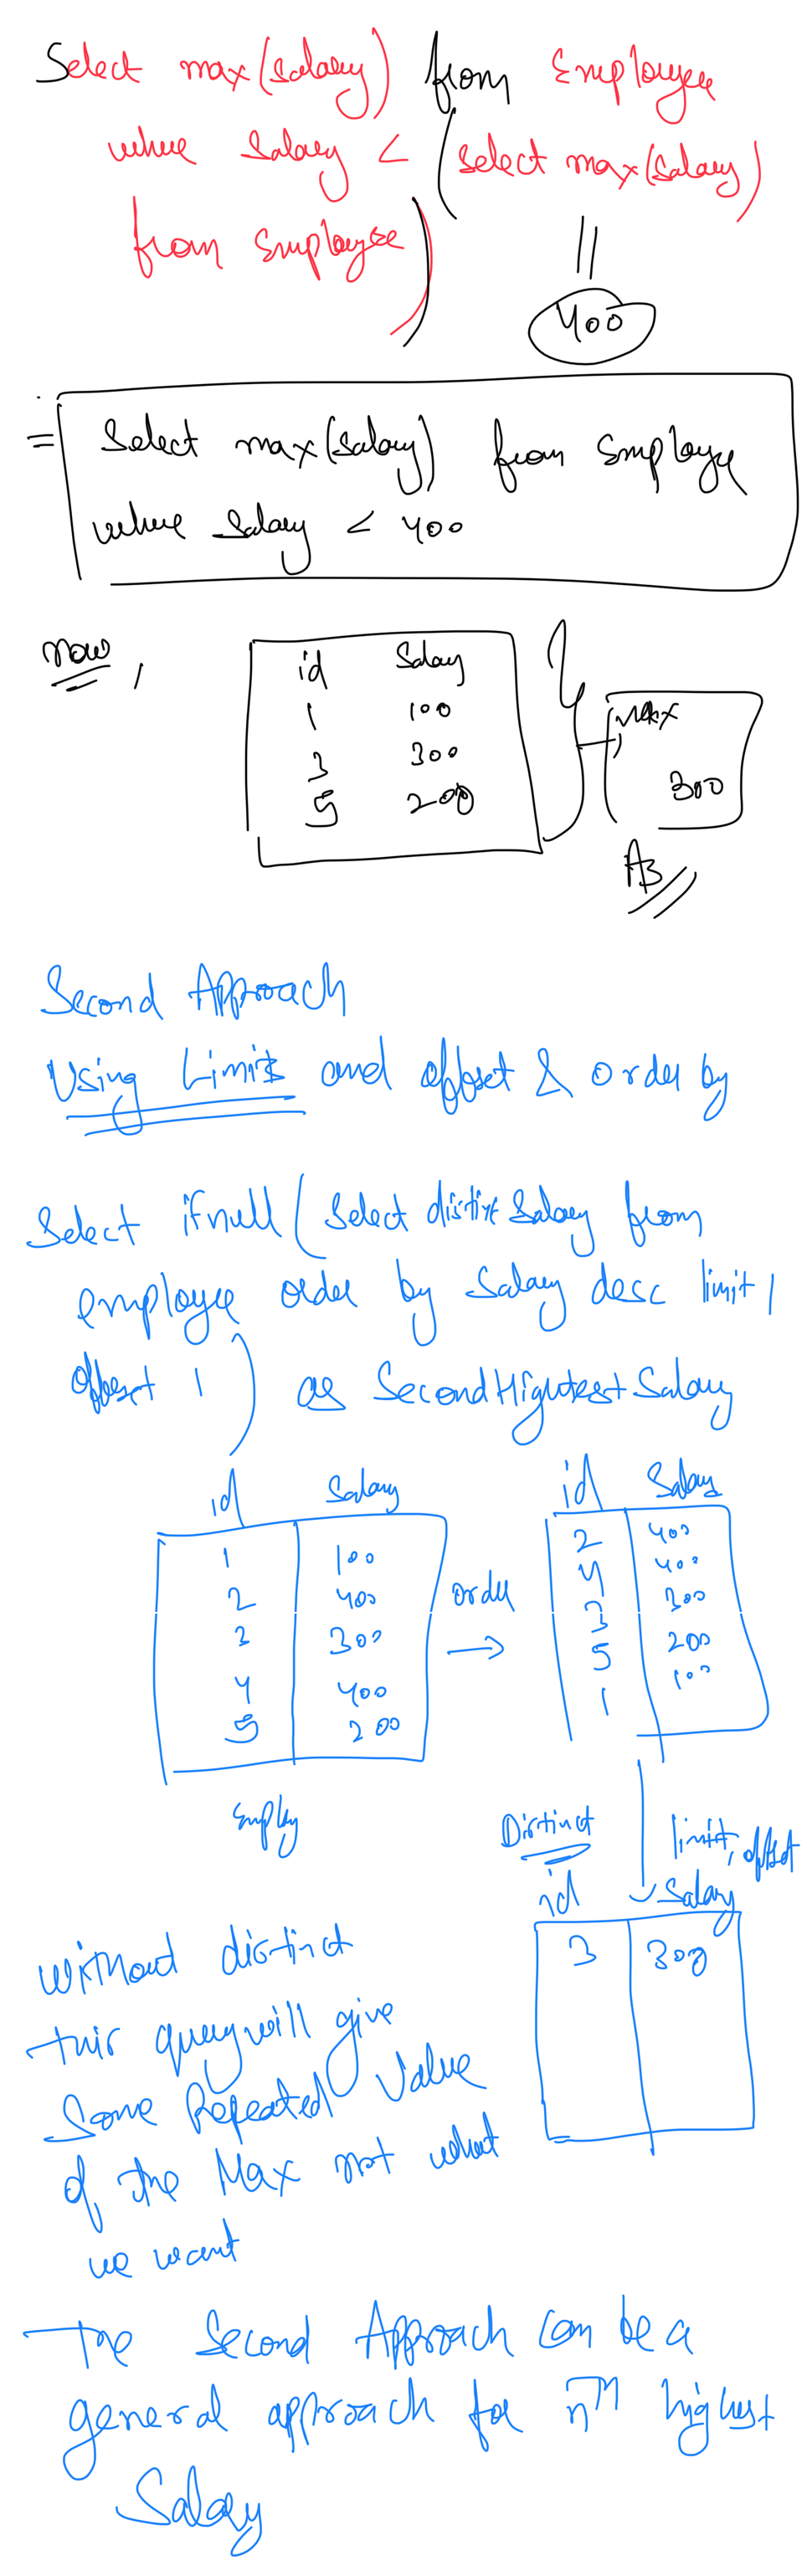 Select max(salary) from Employee
where salary < (select max(salary)
from Employee)
||
400
= Select max(salary) from Employe
where salary < 400
now,
id Salary
1 100
3 300
5 200
Max
300
Second Approach
Using Limit and offset & order by
Select ifnull (select distinct salary from
employee order by salary desc limit 1
offset 1) as SecondHighestSalary
id Salary
1 100
2 400
3 300
4 400
5 200
Employ
order
id Salary
2 400
4 400
3 300
5 200
1 100
Distinct
limit, offset
id Salary
3 300
without distinct
this query will give
Some Repeated Value
of the Max not what
we want
The Second Approach can be a
general approach for nth highest
Salary